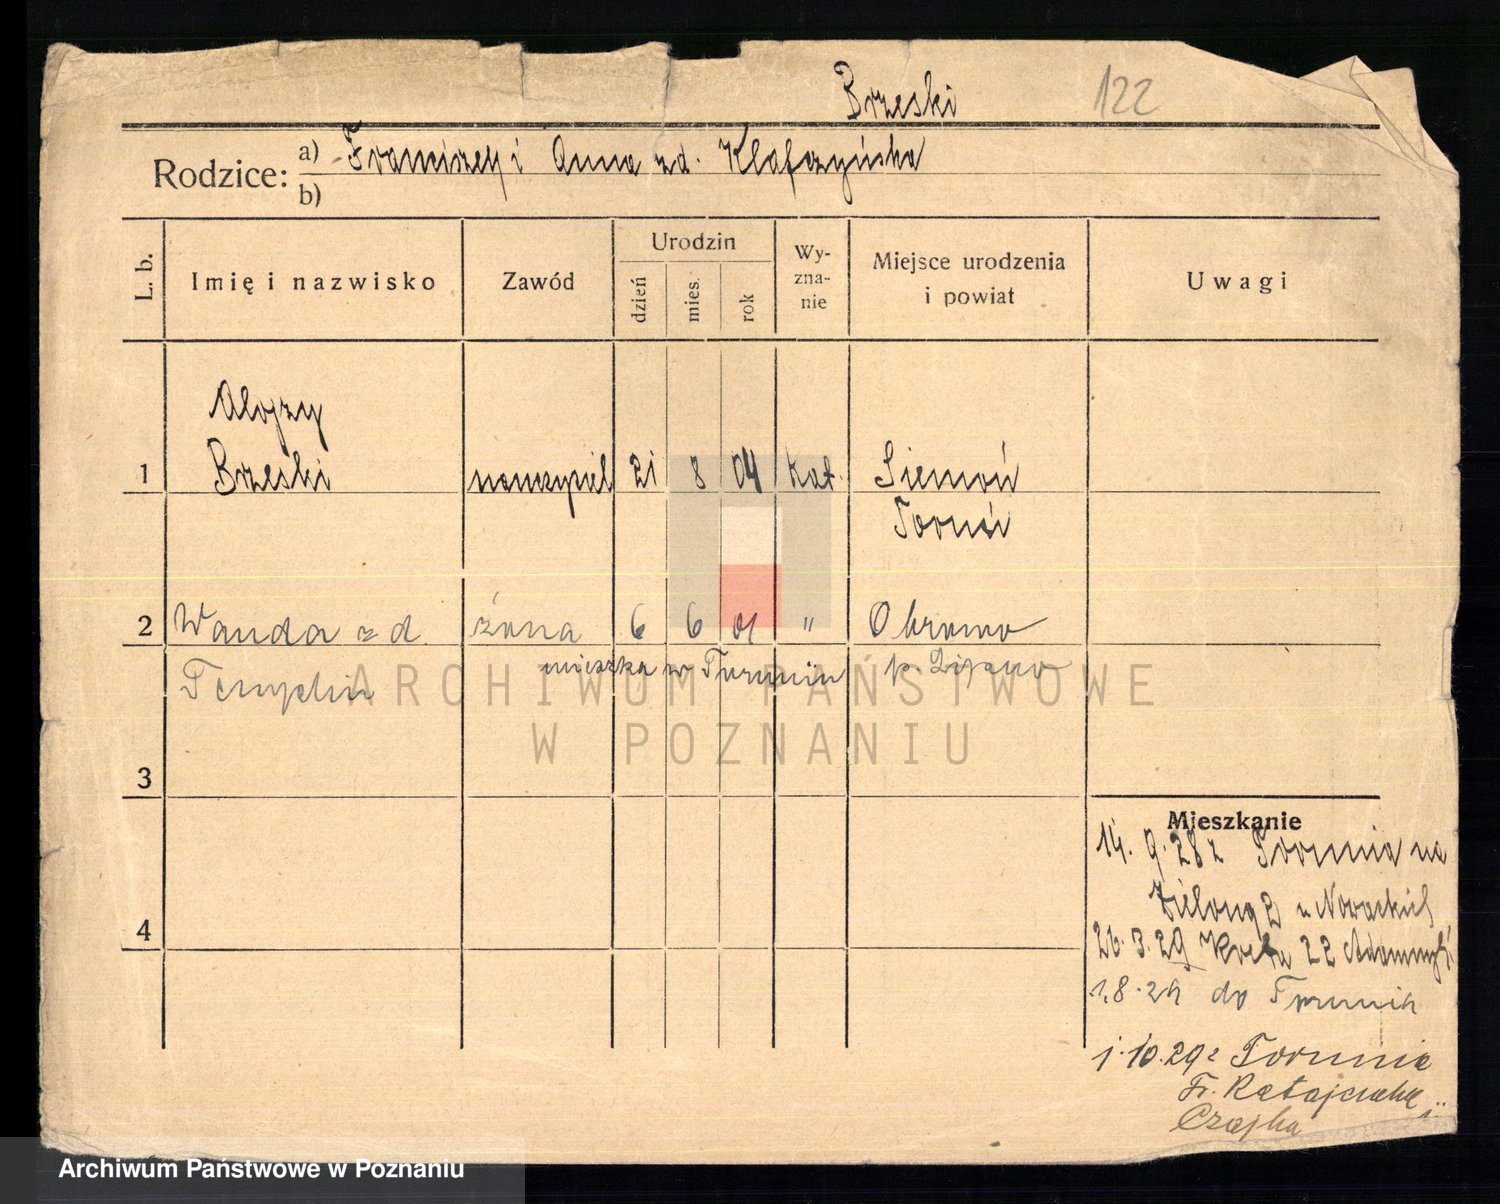 Brzeski
122
Rodzice: a) Franciszek i Anna zd. Klafczyńska
b)
L. b.
Imię i nazwisko
Zawód
Urodzin
dzień
mies.
rok
Wy-
zna-
nie
Miejsce urodzenia
i powiat
Uwagi
Alojzy
1 Brzeski nauczyciel 21 8 04 kat. Siemoń
Toruń
2 Wanda z d. żona 6 6 01 " Obrowo
mieszka w Toruniu p. Lipno
3
4
Mieszkanie
14. 9. 28 z Torunia na
Zieloną 2 u Nowackich
26. 3. 29 22
1.8.29 do Torunia
1.10.29 z Torunia
Fr. Ratajczaka
Czajka
ARCHIWUM PAŃSTWOWE
W POZNANIU
Archiwum Państwowe w Poznaniu